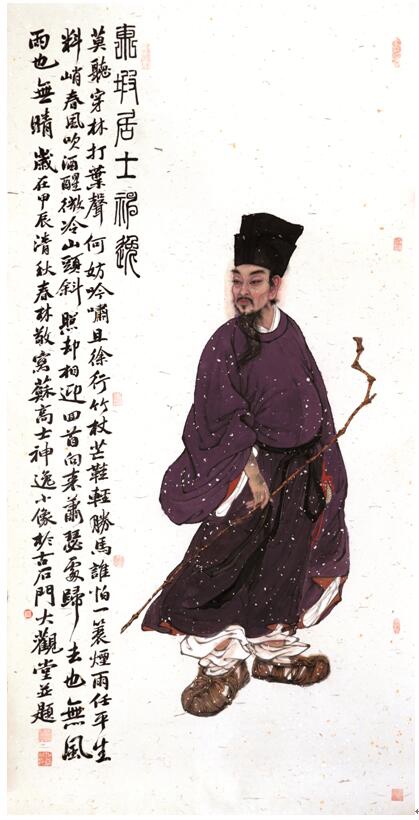 東坡居士神逸
莫聽穿林打葉聲何妨吟嘯且徐行竹杖芒鞋輕勝馬誰怕一蓑煙雨任平生
料峭春風吹酒醒微冷山頭斜照却相迎回首向來蕭瑟處歸去也無風
雨也無晴 歲在甲辰清秋春林敬寫蘇高士神逸小像於古石門大觀堂並題